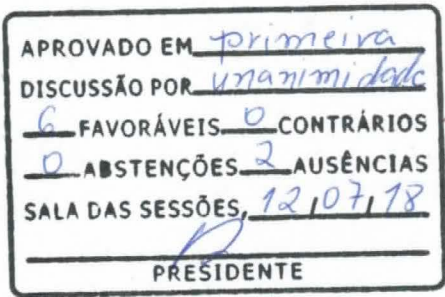 APROVADO EM primeira
DISCUSSÃO POR unanimidade
6 FAVORÁVEIS 0 CONTRÁRIOS
0 ABSTENÇÕES 2 AUSÊNCIAS
SALA DAS SESSÕES, 12/07/18
PRESIDENTE